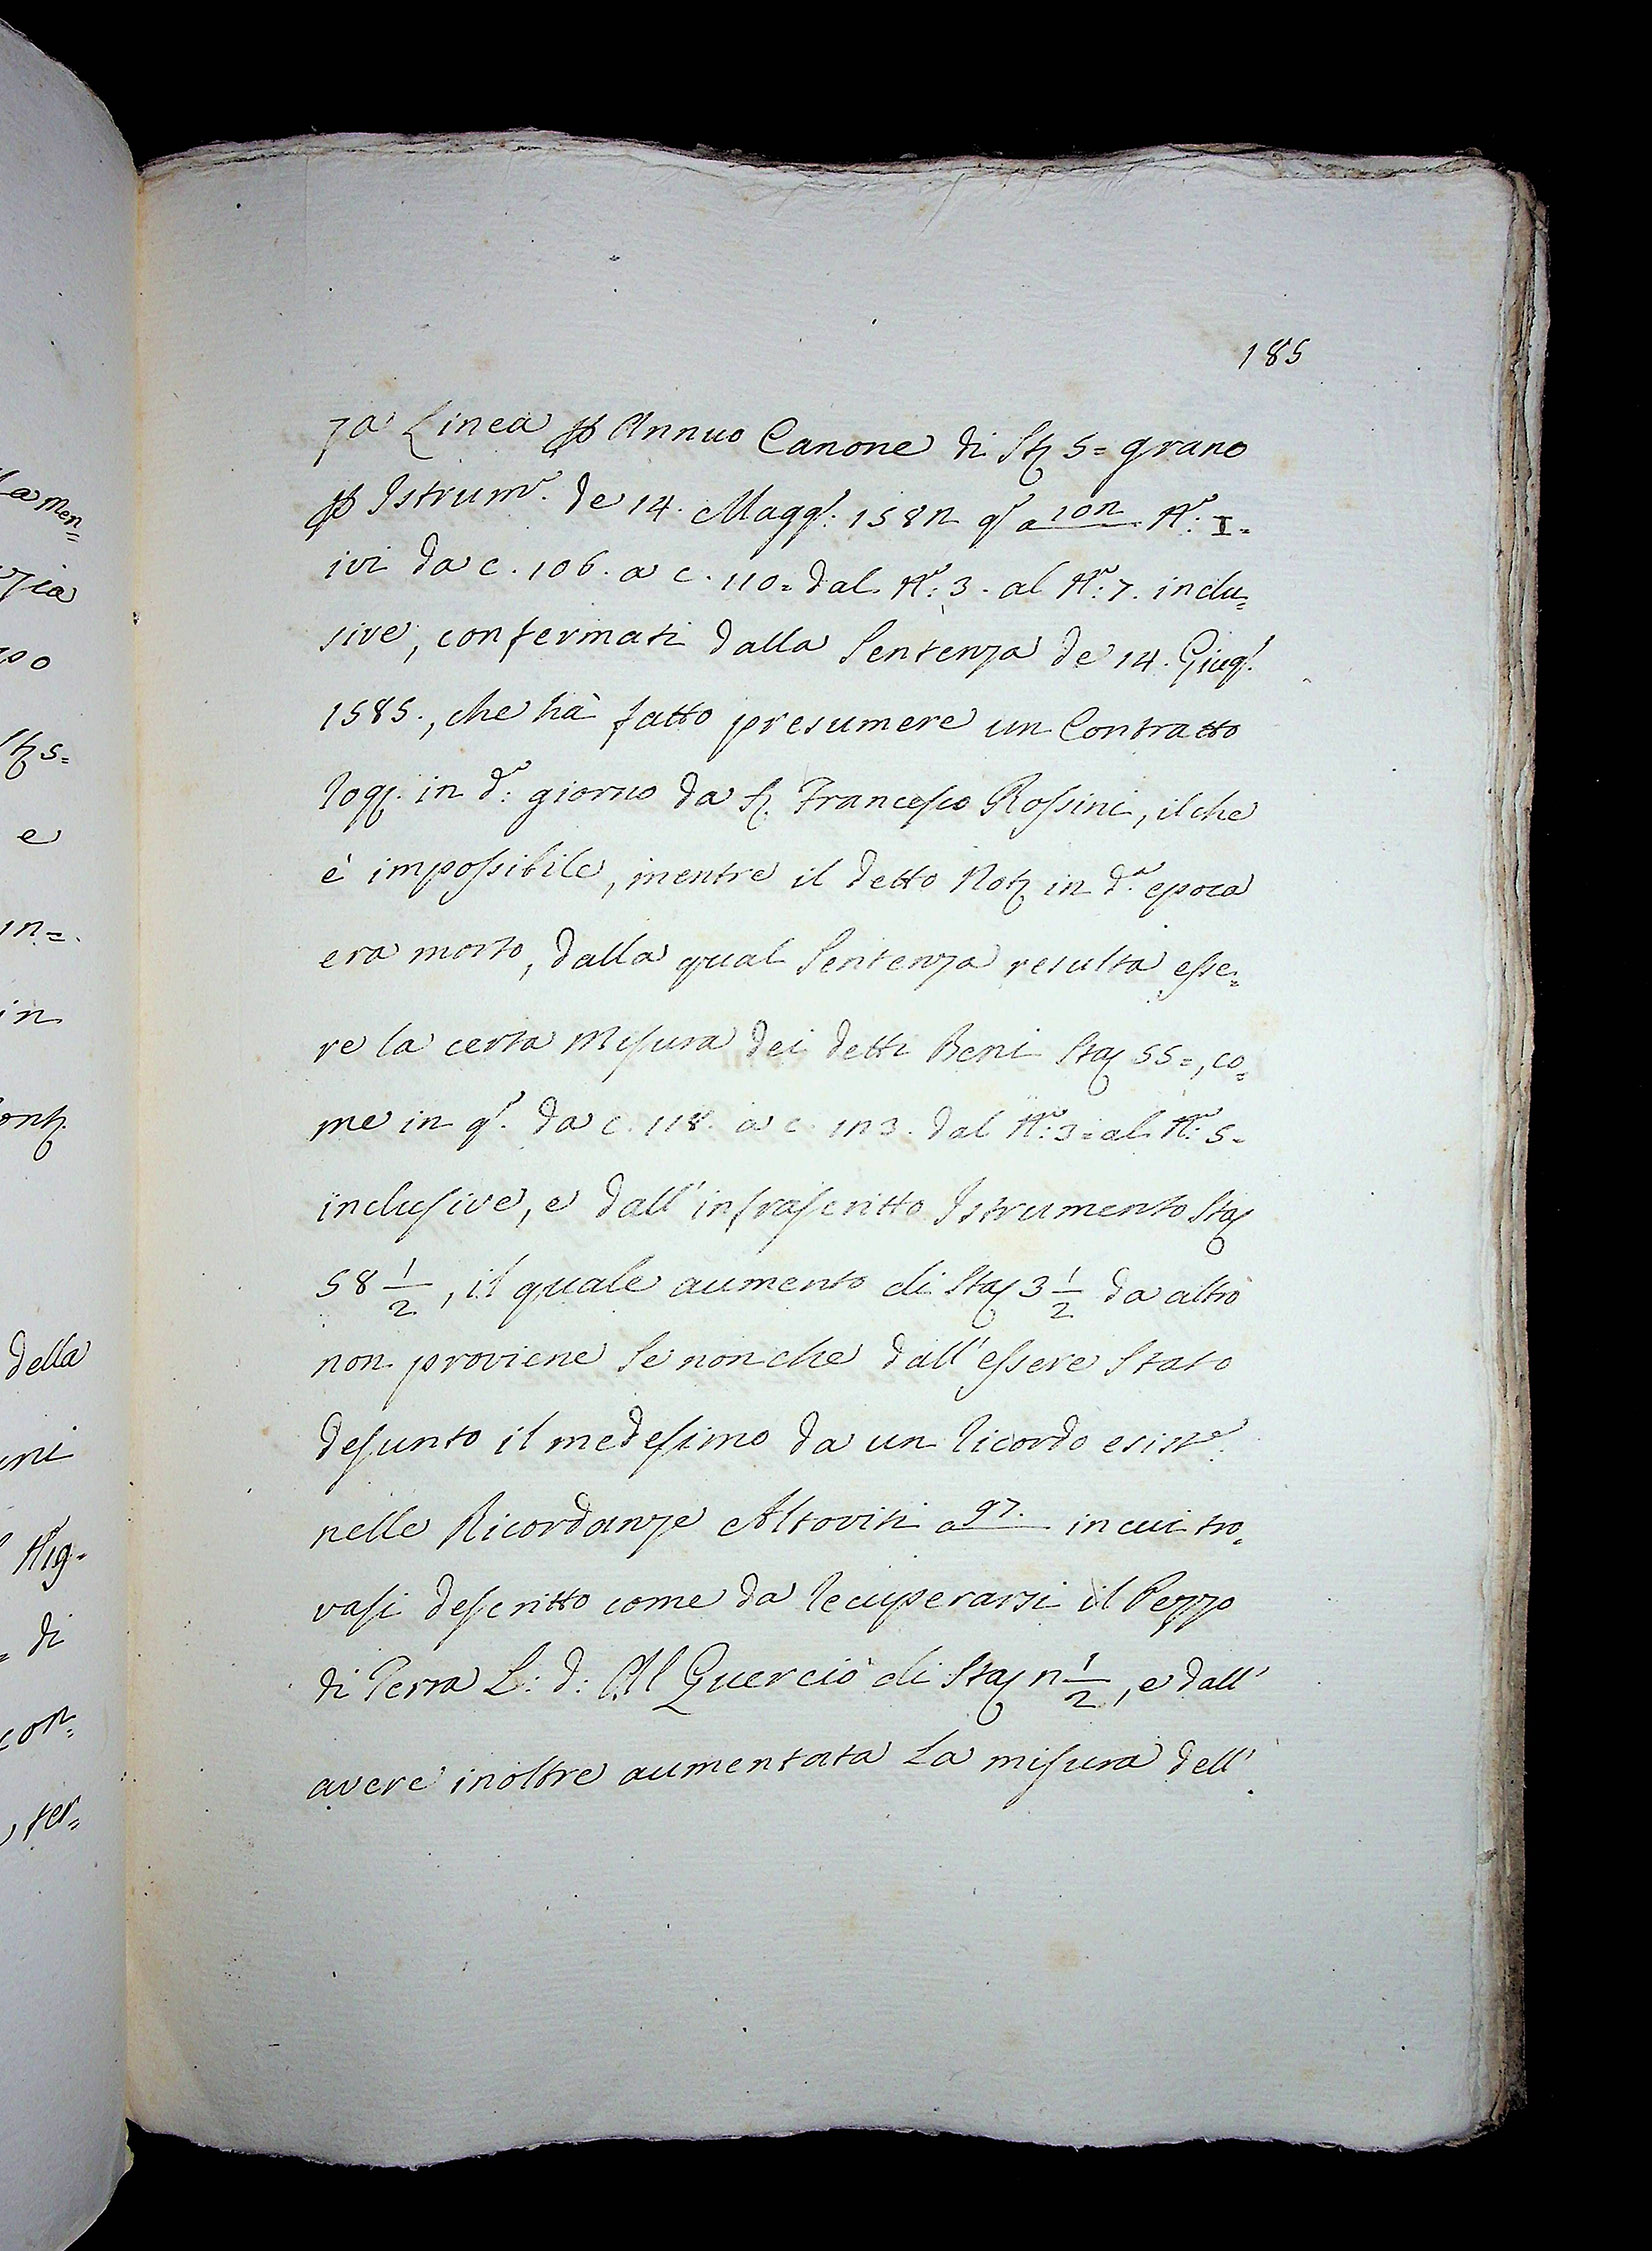 185
za Linea p Annuo Canone di St; 5= grano
p Istrumo. de 14. Magg: 1582 q a 102 No: I=
ivi da c. 106. a c. 110= dal No: 3. al No: 7. inclu=
sive, confermati dalla Sentenza de' 14. Giug:
1585., che hà fatto presumere un Contratto
rog. in do: giorno da S. Francesco Rossini, il che
è impossibile, mentre il detto Not; in da. epoca
era morto, dalla qual Sentenza resulta esse=
re la certa Misura dei detti Beni Sta; 55=, co=
me in q. da c. 118. a c. 123. dal No: 3= al No: 5=
inclusive, e dall'infrascritto Istrumento Sta;
58 1/2, il quale aumento di Sta; 3 1/2 da altro
non proviene se non che dall'essere stato
desunto il medesimo da un ricordo esiste.
nelle Ricordanze Altoviti a 97. in cui tro=
vasi descritto come da recuperarsi il Pezzo
di Terra L: d: Al Quercio di Sta; 2 1/2, e dall'
avere inoltre aumentata la misura dell'
amen=
zia
St; 5=
e
in=
in
della
di
con=
, ter=